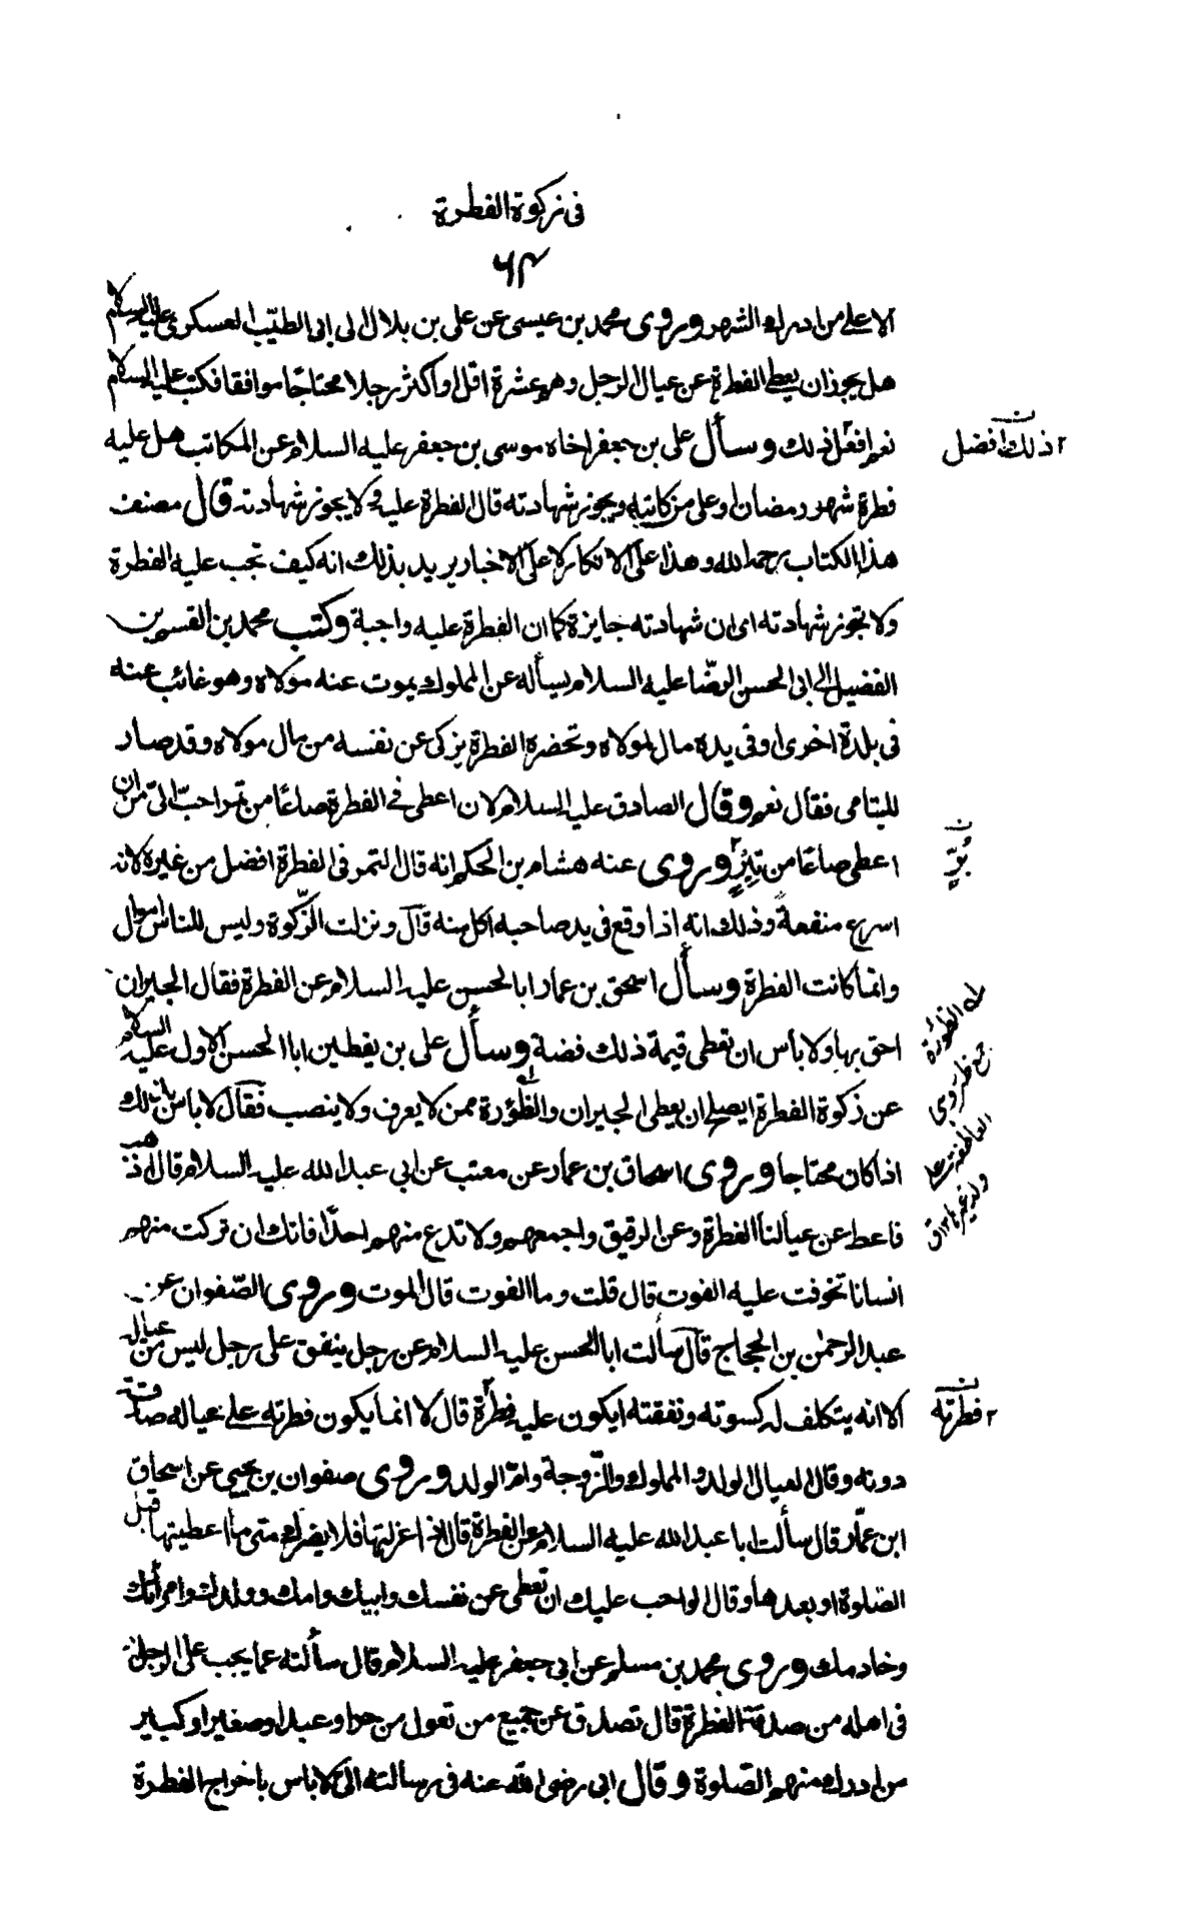 في زكوة الفطرة
٦٣
الا على من ادرك الشهر وروى محمد بن عيسى عن علي بن بلال الى ابى الطيّب العسكرى عليه السلام
هل يجوز ان يعطى الفطرة عن عيال الرجل وهو عشرة اقل او اكثر رجلا محتاجًا موافقا فكتب عليه السلام
نعم افعل ذلك وسأل على بن جعفر اخاه موسى بن جعفر عليه السلام عن المكاتب هل عليه
٢ ذلك افضل
فطرة شهر رمضان او على من كاتبه ويجوز شهادته قال الفطرة عليه ولا يجوز شهادته قال مصنف
هذا الكتاب رحمه الله وهذا على الانكار لا على الاخبار يريد بذلك انه كيف تجب عليه الفطرة
ولا تجوز شهادته اى ان شهادته جايزة كما ان الفطرة عليه واجبة وكتب محمد بن القسم بن
الفضيل الى ابى الحسن الرضّا عليه السلام يسأله عن المملوك يموت عنه مولاه وهو غائب عنه
فى بلدة اخرى وفى يده مال لمولاه وتحضره الفطرة يزكى عن نفسه من مال مولاه وقد صار
لليتامى فقال نعم وقال الصادق عليه السلام لان اعطى فى الفطرة صاعًا من تمر احبّ الىّ من ان
اعطى صاعًا من تبرٍ وروى عنه هشام بن الحكم انه قال التمر فى الفطرة افضل من غيره لانه
برّ
اسرع منفعة وذلك انه اذا وقع فى يد صاحبه اكل منه قال ونزلت الزّكوة وليس للناس اموال
وانما كانت الفطرة وسأل اسحق بن عمار ابا الحسن عليه السلام عن الفطرة فقال الجيران
احق بها ولا بأس ان تعطى قيمة ذلك فضة وسأل على بن يقطين ابا الحسن الاول عليه السلام
عن زكوة الفطرة ايصلح ان يعطى الجيران والظؤرة ممن لا يعرف ولا ينصب فقال لا باس بذلك
الظئورة
جمع ظئر وهى
العاطفة على
ولد غيرها ١٢ ق
اذا كان محتاجا وروى اسحاق بن عمار عن معتب عن ابي عبد الله عليه السلام قال اذهب
فاعط عن عيالنا الفطرة وعن الرقيق واجمعهم ولا تدع منهم احدًا فانك ان تركت منهم
انسانا تخوفت عليه الفوت قال قلت وما الفوت قال الموت وروى الصّفوان عن
عبد الرحمن بن الحجاج قال سألت ابا الحسن عليه السلام عن رجل ينفق على رجل ليس من عياله
الا انه يتكلف له كسوته ونفقته ايكون عليه فطرة قال لا انما يكون فطرته على عياله صدقة
٢ فطرته
دونه وقال العيال الولد والمملوك والزّوجة وامّ الولد وروى صفوان بن يحيى عن اسحاق
ابن عمّار قال سألت ابا عبد الله عليه السلام عن الفطرة قال اذا عزلتها فلا يضرك متى ما اعطيتها قبل
الصّلوة او بعدها وقال الواجب عليك ان تعطى عن نفسك وابيك وامك وولدك وامرأتك
وخادمك وروى محمد بن مسلم عن ابى جعفر عليه السلام قال سألته عما يجب على الرجل
فى اهله من صدقة الفطرة قال تصدق عن جميع من تعول من حر او عبد او صغير او كبير
من ادرك منهم الصّلوة وقال ابى رضى الله عنه فى رسالته الىّ لا باس باخراج الفطرة